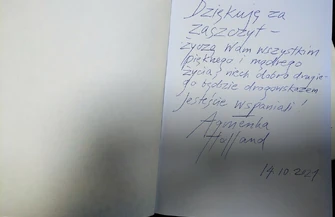 Dziękuję za
zaszczyt –
życzę Wam wszystkim
pięknego i mądrego
życia, niech dobro drugie-
go będzie drogowskazem
Jesteście wspaniali!
Agnieszka
Holland
14.10.2021